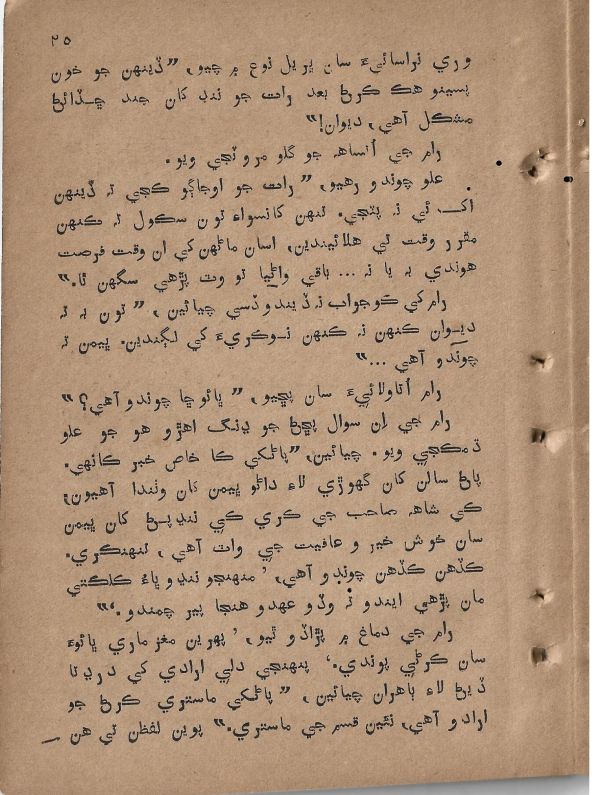 ۲۵
وري نراسائيءَ سان ڀريل نوع ۾ چيو، ”ڏينهن جو خون
پسينو هڪ ڪرڻ بعد رات جو ننڊ کان جند ڇـڏائڻ
مشڪل آهي، ديوان!“
رام جي اُتساهہ جو گلو مروٽجي ويو.
علو چوندو رهيو، ”رات جو اوجاڳو ڪجي تہ ڏينهن
اک ئي نہ پٽجي. تنهن کانسواءِ تون سڪول تہ ڪنهن
مقرر وقت تي هلائيندين، اسان ماڻهن کي ان وقت فرصت
هوندي بہ يا نہ ... باقي واڻيا تو وٽ پڙهي سگهن ٿا.“
رام کي ڪوجواب نہ ڏيندو ڏسي چيائين، ”تون بہ تہ
ديـوان ڪنهن نہ ڪنهن نـوڪريءَ کي لڳندين. ڀيمن تہ
چوندو آهي ...“
رام اُتاولائيءَ سان پڇيو، ”ڀائو ڇا چوندو آهي؟“
رام جي اِن سوال پڇڻ جو ڍنگ اهڙو هو جو علو
ڌمڪجي ويو. چيائين، ”پاڻکي ڪا خاص خبر ڪانهي.
پاڻ سالن کان گهوڙي لاءِ داڻو ڀيمن کان وٺندا آهيون،
ڪي شاهہ صاحب جي ڪري ڪي ننڍپـڻ کان ڀيمن
سان خوش خير و عافيت جي واٽ آهي، تنهنڪري.
ڪڏهن ڪڏهن چوندو آهي، ’منهنجو ننڍو ڀاءُ ڪلڪتي
مان پڙهي ايندو تہ وڏو عهدو هنجا پير چمندو.‘“
رام جي دماغ ۾ پڙاڏو ٿيو، ’پهرين مغز ماري ڀائوءَ
سان ڪرڻي پوندي.‘ پنهنجي دلي ارادي کي درڍتا
ڏيڻ لاءِ ٻاهران چيائين، ”پاڻکي ماستري ڪرڻ جو
ارادو آهي، نئين قسم جي ماستري.“ پوين لفظن تي هن —